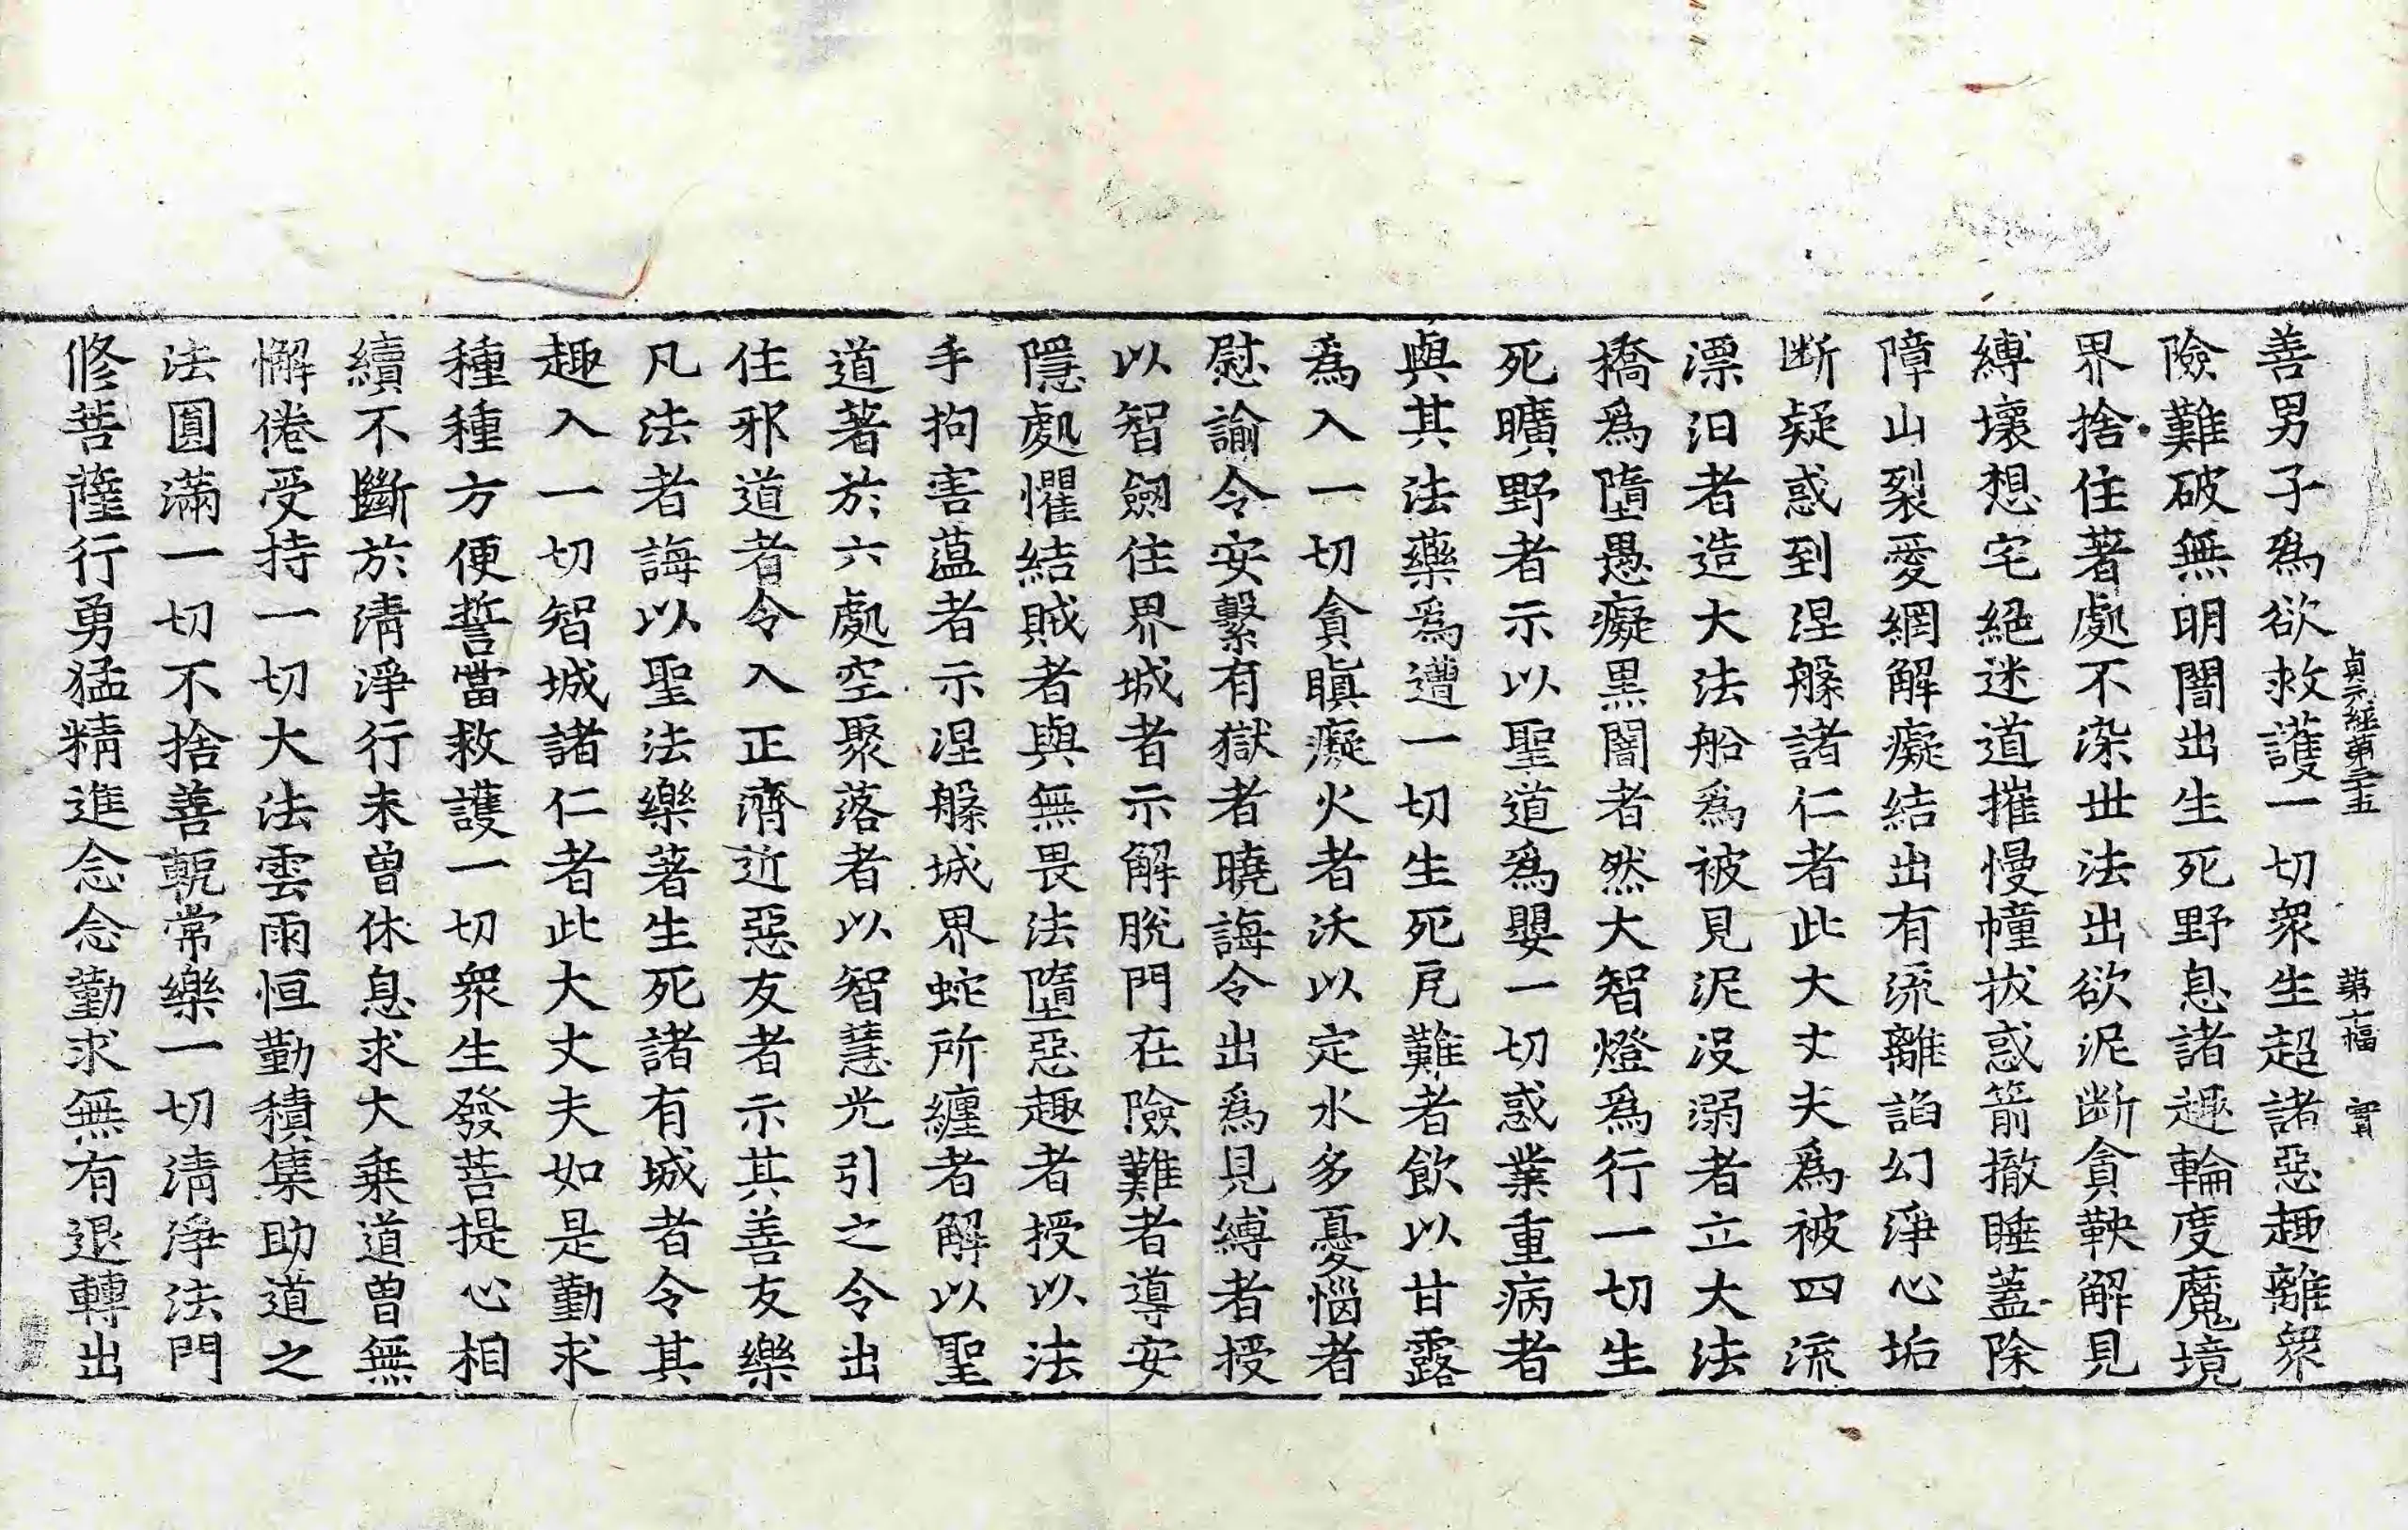 善男子爲欲救護一切衆生超諸惡趣離衆
貞元經第三十五 第七福 實
險難破無明闇出生死野息諸趣輪度魔境
界捨住著處不染世法出欲泥断貪鞅解見
縛壞想宅絕迷道摧慢幢拔惑箭撤睡蓋除
障山裂愛網解癡結出有流離諂幻淨心垢
断疑惑到涅槃諸仁者此大丈夫爲被四流
漂汨者造大法船爲被見泥没溺者立大法
橋爲墮愚癡黒闇者然大智燈爲行一切生
死曠野者示以聖道爲嬰一切惑業重病者
與其法藥爲遭一切生死戹難者飲以甘露
爲入一切貪瞋癡火者沃以定水多憂惱者
慰諭令安繫有獄者曉誨令出爲見縛者授
以智劒住界城者示解脫門在險難者導安
隱處懼結賊者與無畏法墮惡趣者授以法
手拘害蕰者示涅槃城界蛇所纏者解以聖
道著於六處空聚落者以智慧光引之令出
住邪道者令入正濟近惡友者示其善友樂
凡法者誨以聖法樂著生死諸有城者令其
趣入一切智城諸仁者此大丈夫如是勤求
種種方便誓當救護一切衆生發菩提心相
續不斷於清淨行未曾休息求大乗道曾無
懈倦受持一切大法雲雨恒勤積集助道之
法圓滿一切不捨善軛常樂一切清淨法門
修菩薩行勇猛精進念念勤求無有退轉出